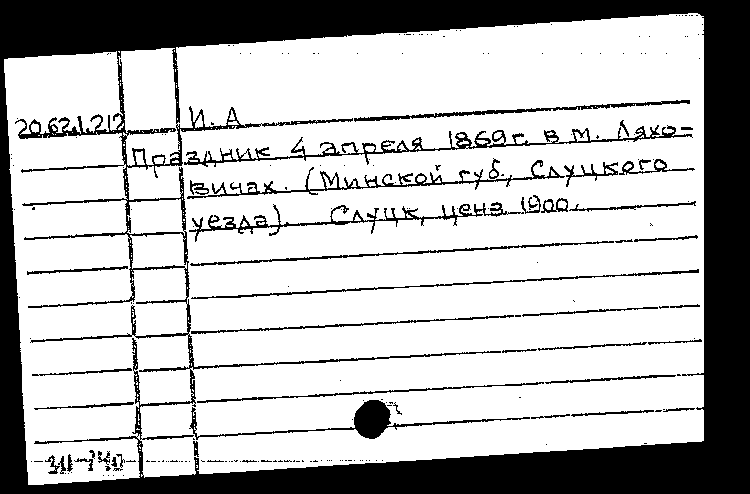 20.62.1.212 И. А
Праздник 4 апреля 1869 г. в м. Ляхо=
вичах. (Минской губ., Слуцкого
уезда). Слуцк, ценз. 1900.